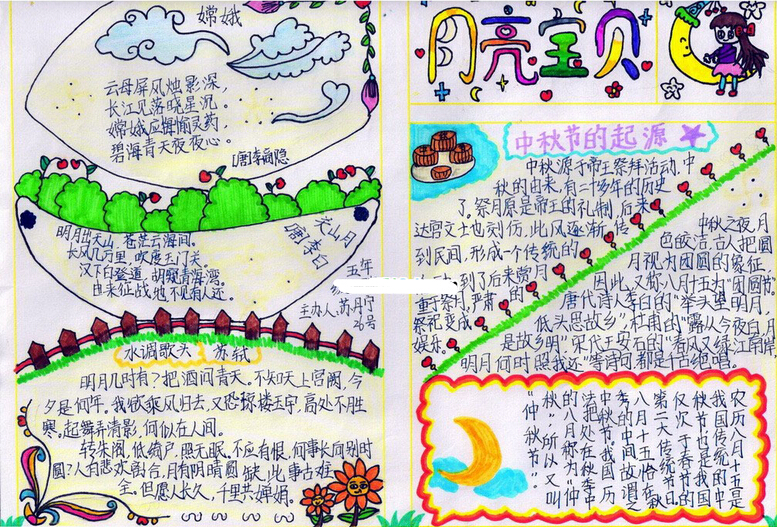 嫦娥
云母屏风烛影深，
长江见落晓星沉。
嫦娥应悔偷灵药，
碧海青天夜夜心。
[唐]李商隐
关山月
唐 李白
明月出天山，苍茫云海间。
长风几万里，吹度玉门关。
汉下白登道，胡窥青海湾。
由来征战地，不见有人还。
五年
主办人：苏丹宁
26号
水调歌头 苏轼
明月几时有？把酒问青天。不知天上宫阙，今
夕是何年。我欲乘风归去，又恐琼楼玉宇，高处不胜
寒。起舞弄清影，何似在人间。
转朱阁，低绮户，照无眠。不应有恨，何事长向别时
圆？人有悲欢离合，月有阴晴圆缺，此事古难
全。但愿人长久，千里共婵娟。
月亮宝贝
中秋节的起源
中秋源于帝王祭拜活动，中
秋的由来，有二千多年的历史
了。祭月原是帝王的礼制，后来
达官文士也刻仿，此风逐渐传
到民间，形成一个传统的
到了后来赏月
重于祭月，严肃的
祭祀变成
娱乐。
中秋之夜，月
色皎洁，古人把圆
月视为团圆的象征，
因此，又称八月十五为“团圆节”
唐代诗人李白的“举头望明月，
低头思故乡”杜甫的“露从今夜白，月
是故乡明”宋代王安石的“春风又绿江南岸，
明月何时照我还”等诗句都是千古绝唱。
农历八月十五是
我国传统的中
秋节，也是我国
仅次于春节的
第二大传统节日。